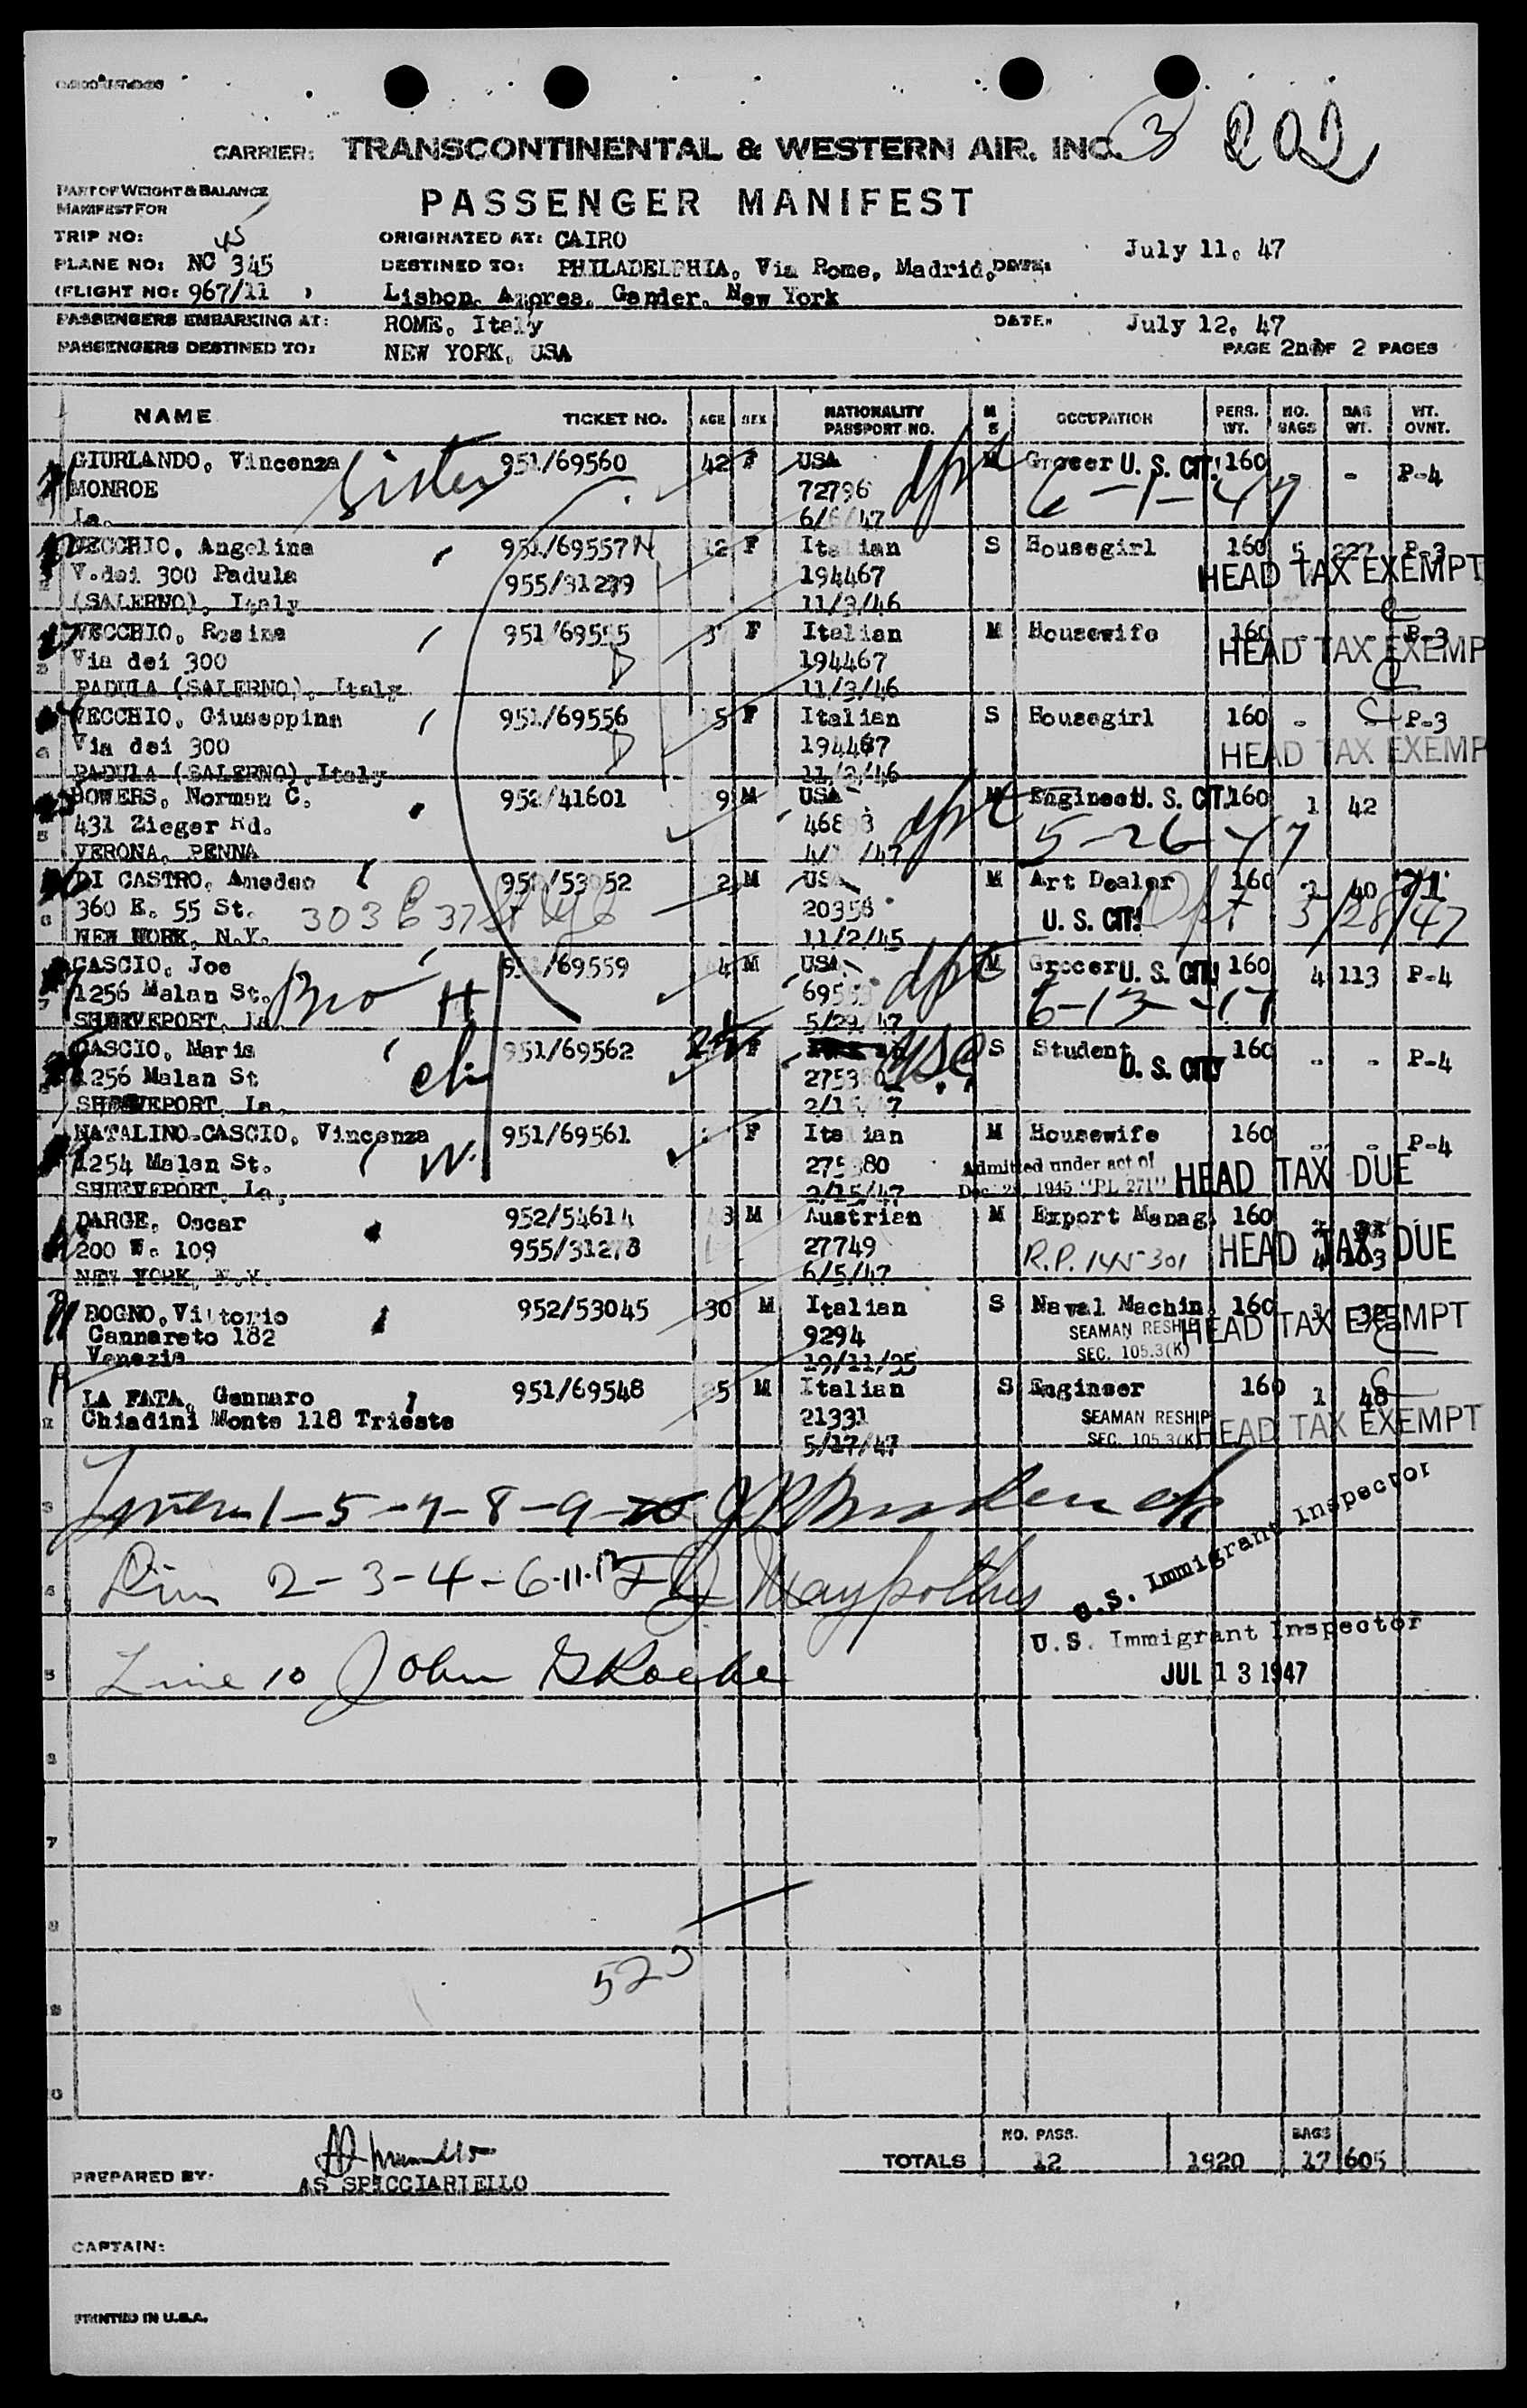 CARRIER: TRANSCONTINENTAL & WESTERN AIR, INC. 3 202
PART OF WEIGHT & BALANCE
MANIFEST FOR
PASSENGER MANIFEST
TRIP NO: 45 ORIGINATED AT: CAIRO July 11, 47
PLANE NO: NC 345 DESTINED TO: PHILADELPHIA, Via Rome, Madrid, DATE:
(FLIGHT NO: 967/11 ) Lisbon, Azores, Gander, New York
PASSENGERS EMBARKING AT: ROME, Italy DATE: July 12, 47
PASSENGERS DESTINED TO: NEW YORK, USA PAGE 2nd OF 2 PAGES
NAME TICKET NO. AGE SEX NATIONALITY PASSPORT NO. M S OCCUPATION PERS. WT. NO. BAGS BAG WT. WT. OVNT.
GIURLANDO, Vincenza Sister 951/69560 42 F USA M Grocer U. S. CIT! 160 - P-4
MONROE 72796 dpt 6-1-47
La. 6/6/47
VECCHIO, Angelina 951/69557 12 F Italian S Housegirl 160 5 227 P-3
V.dei 300 Padula 955/31279 194467 HEAD TAX EXEMPT
(SALERNO), Italy 11/3/46
VECCHIO, Rosina 951/69555 F Italian M Housewife 160 - - P-3
Via dei 300 194467 HEAD TAX EXEMP
PADULA (SALERNO), Italy 11/3/46
VECCHIO, Giuseppina 951/69556 F Italian S Housegirl 160 - P-3
Via dei 300 194467 HEAD TAX EXEMP
PADULA (SALERNO), Italy 11/3/46
BOWERS, Norman C. 952/41601 M USA M Engineer U. S. CIT! 160 1 42
431 Zieger Rd. dpt 5-26-47
VERONA, PENNA
DI CASTRO, Amedeo M USA M Art Dealer 160 40
360 E. 55 St. 303 E 37 St 20358 U. S. CIT! Dpt 5/28/47
NEW YORK, N.Y. 11/2/45
CASCIO, Joe 951/69559 M USA M Grocer U. S. CIT! 160 4 113 P-4
1256 Malan St. Bro H dpt 6-13-47
SHREVEPORT, La 5/29/47
CASCIO, Maria 951/69562 F USC S Student 160 - - P-4
1256 Malan St ch 275380 U. S. CIT
SHREVEPORT, La. 2/15/47
NATALINO-CASCIO, Vincenza 951/69561 F Italian M Housewife 160 - - P-4
1254 Malan St. W. 275380 Admitted under act of HEAD TAX DUE
SHREVEPORT, La. 2/15/47 Dec. 28, 1945 "PL 271"
DARGE, Oscar 952/54614 M Austrian M Export Manag. 160
200 W. 109 955/31278 27749 R.P. 145301 HEAD TAX DUE
NEW YORK, N.Y. 6/5/47
BOGNO, Vittorio 952/53045 30 M Italian S Naval Machin. 160
Cannareto 182 9294 SEAMAN RESHIP HEAD TAX EXEMPT
Venezia 19/11/35 SEC. 105.3(K)
LA FATA, Gennaro 951/69548 25 M Italian S Engineer 160 1 48
Chiadini Monte 118 Trieste 21331 SEAMAN RESHIP HEAD TAX EXEMPT
5/17/47 SEC. 105.3(K)
1-5-7-8-9
U.S. Immigrant Inspector
2-3-4-6-11-12
U.S. Immigrant Inspector
Line 10 John
JUL 13 1947
NO. PASS. BAGS
TOTALS 12 1920 17 605
PREPARED BY: AS SPICCIARIELLO
CAPTAIN:
PRINTED IN U.S.A.